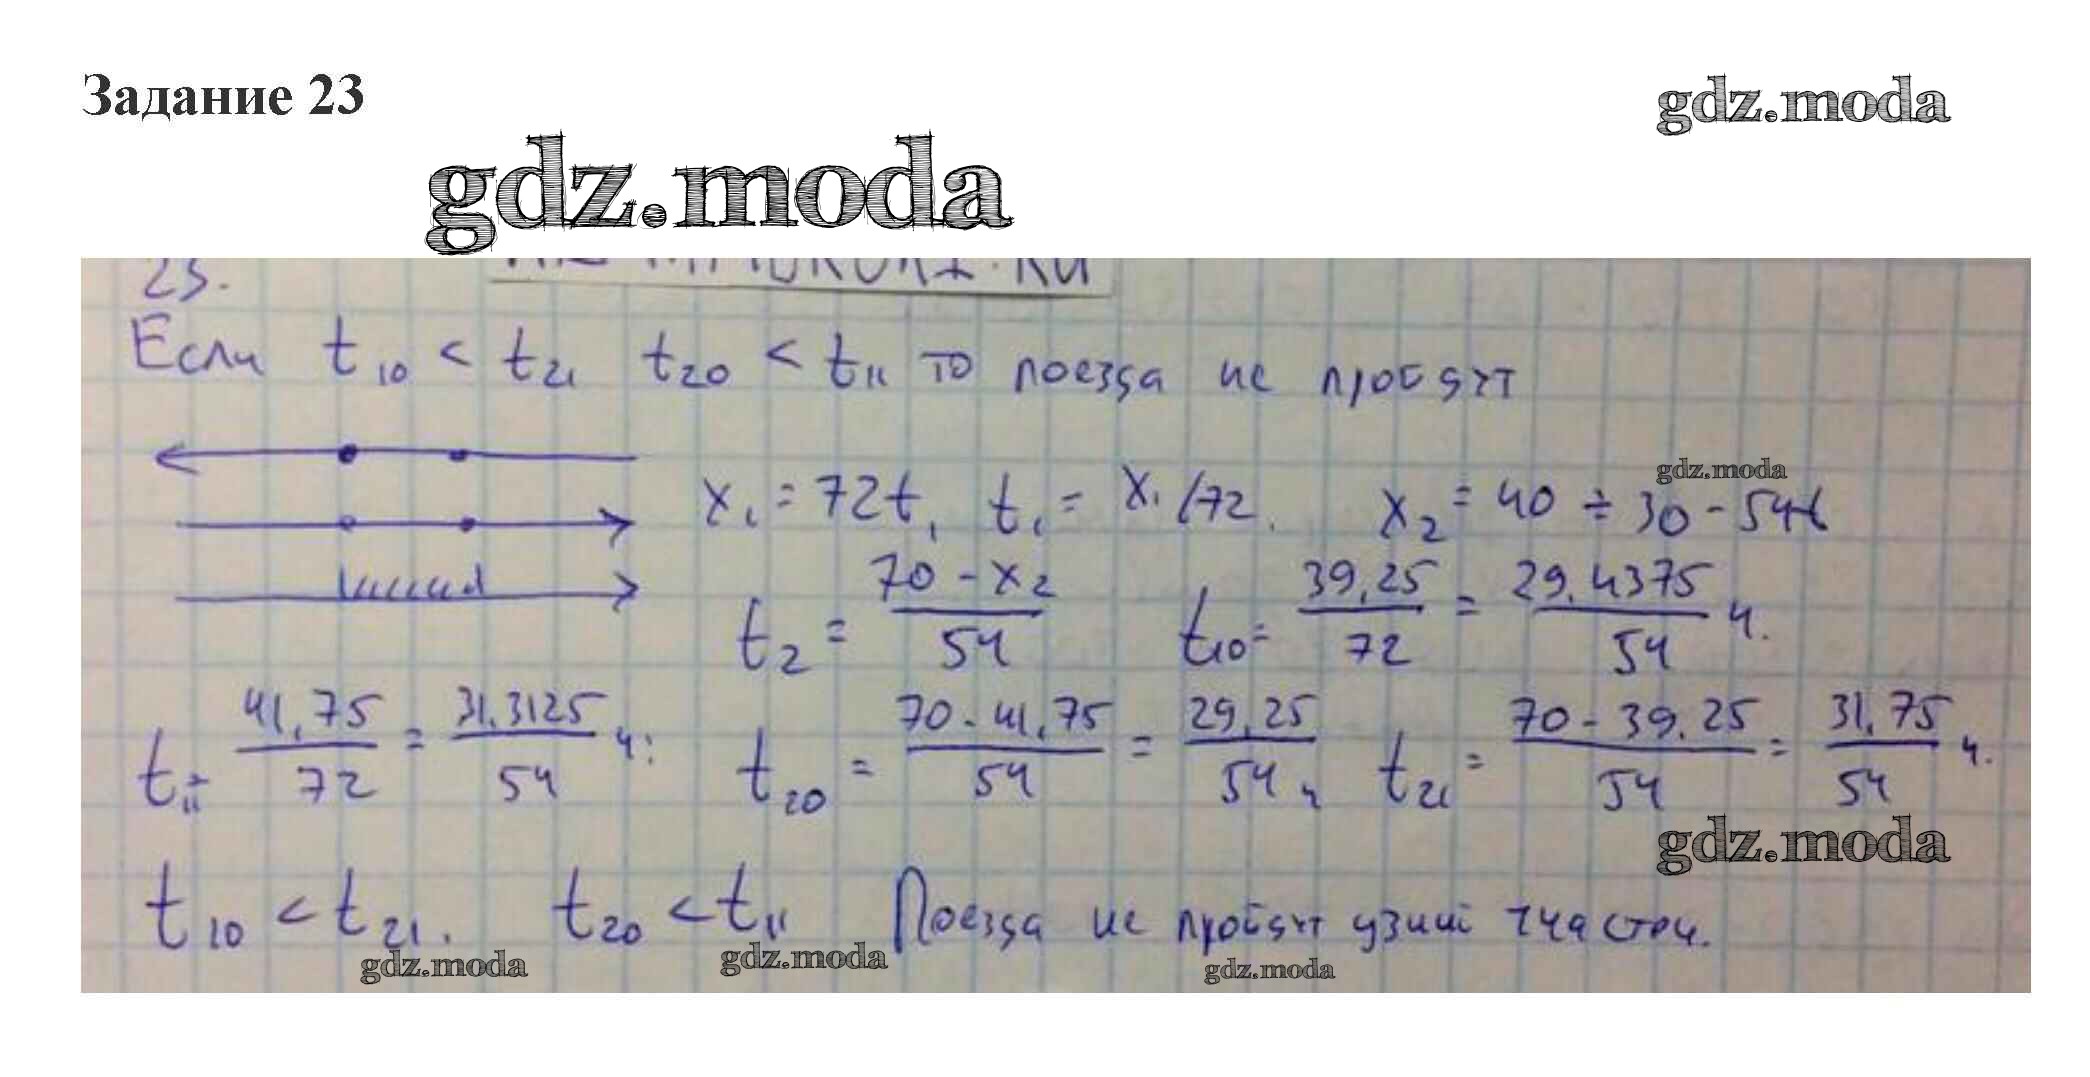 Задание 23
gdz.moda
gdz.moda
23.
Если t₁₀ < t₂₁ t₂₀ < t₁₁ то поезда не пройдут
gdz.moda
x₁ = 72t, t₁ = x₁/72. x₂ = 40 + 30 - 54t
t₂ = (70 - x₂)/54 t₁₀ = 39,25/72 = 29,4375/54 ч.
t₁₁ = 41,75/72 = 31,3125/54 ч; t₂₀ = (70 - 41,75)/54 = 29,25/54 ч t₂₁ = (70 - 39,25)/54 = 31,75/54 ч.
gdz.moda
t₁₀ < t₂₁. t₂₀ < t₁₁ Поезда не пройдут узкий участок.
gdz.moda gdz.moda gdz.moda